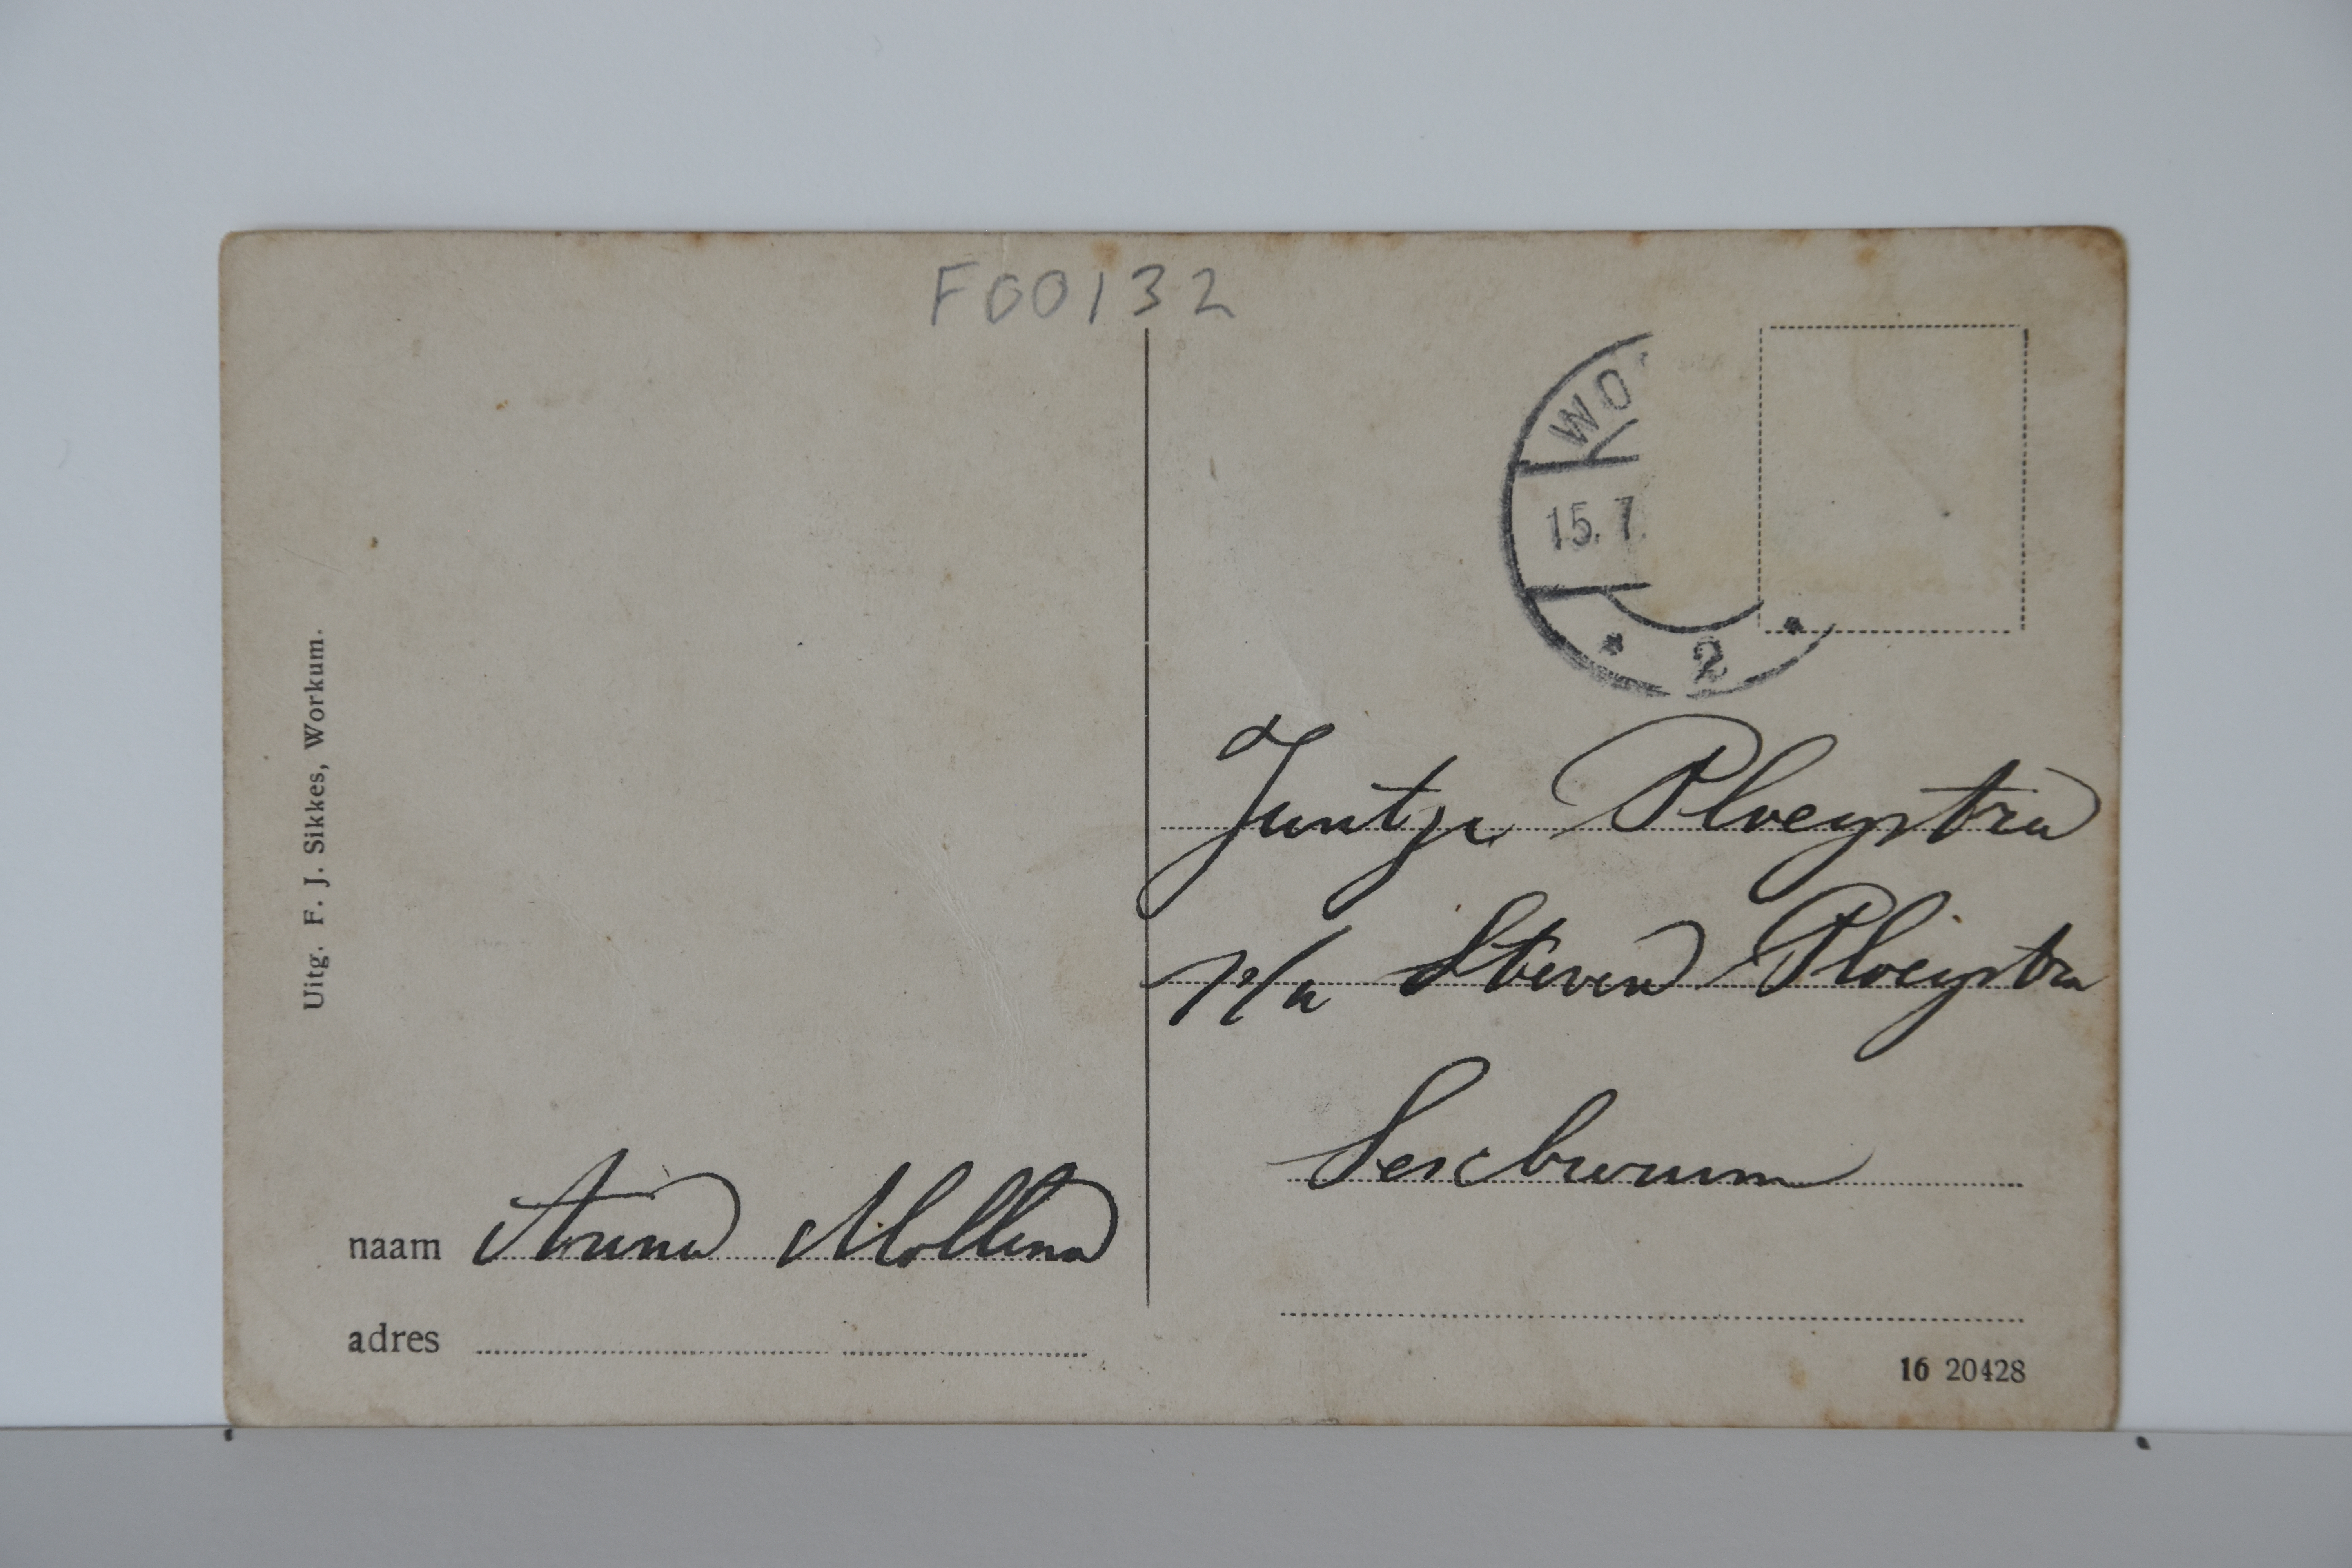 F00132
WO
15.7.
2
Uitg. F. J. Sikkes, Workum.
Juntje Ploeystra
p/a Steven Ploeystra
Sexbierum
naam Anna Mollema
adres
16 20428